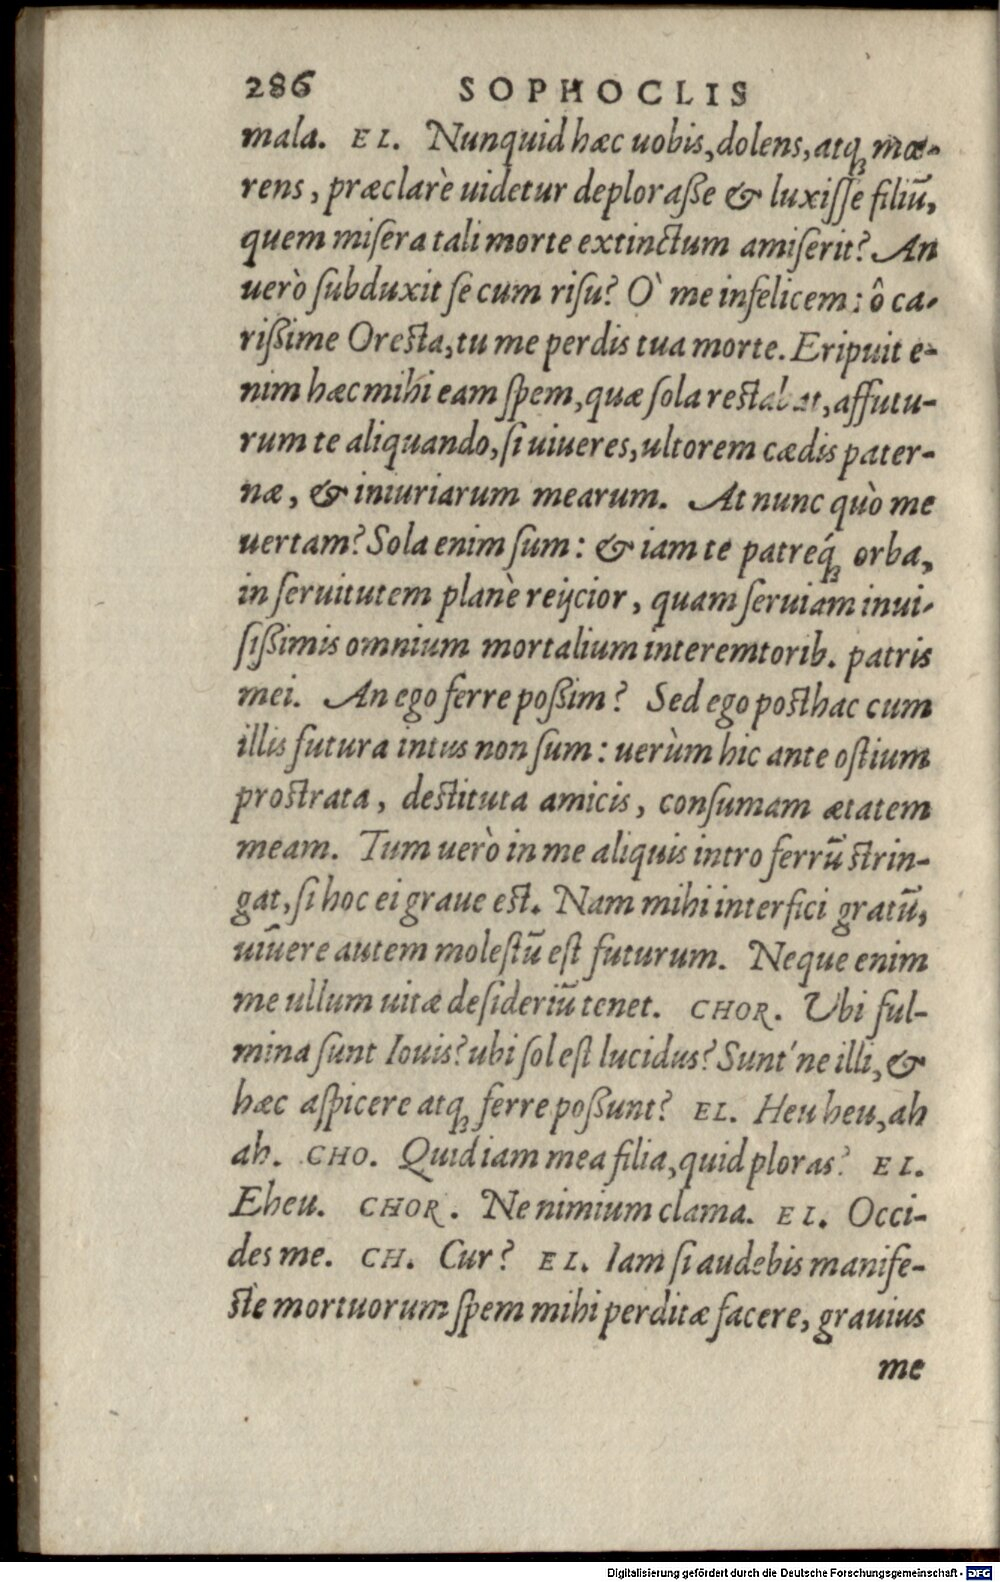 286 SOPHOCLIS
mala. EL. Nunquid hæc uobis, dolens, atq́; mœ-
rens, præclarè uidetur deploraße & luxiſſe filiū,
quem miſera tali morte extinctum amiſerit? An
uerò ſubduxit ſe cum riſu? Ò me infelicem: ô ca-
rißime Oreſta, tu me perdis tua morte. Eripuit e-
nim hæc mihi eam ſpem, quæ ſola reſtabat, affutu-
rum te aliquando, ſi uiueres, ultorem cædis pater-
næ, & iniuriarum mearum. At nunc quò me
uertam? Sola enim ſum: & iam te patreq́; orba,
in ſeruitutem planè reijcior, quam ſeruiam inui-
ſißimis omnium mortalium interemtorib. patris
mei. An ego ferre poßim? Sed ego poſthac cum
illis futura intus non ſum: uerùm hic ante oſtium
proſtrata, deſtituta amicis, conſumam ætatem
meam. Tum uerò in me aliquis intro ferrū ſtrin-
gat, ſi hoc ei graue eſt. Nam mihi interfici gratū,
uiuere autem moleſtū eſt futurum. Neque enim
me ullum uitæ deſideriū tenet. CHOR. Ubi ful-
mina ſunt Iouis? ubi ſol eſt lucidus? Sunt'ne illi, &
hæc aſpicere atq; ferre poßunt? EL. Heu heu, ah
ah. CHO. Quid iam mea filia, quid ploras? EL.
Eheu. CHOR. Ne nimium clama. EL. Occi-
des me. CH. Cur? EL. Iam ſi audebis manife-
ſtè mortuorum ſpem mihi perditæ facere, grauius
me
Digitalisierung gefördert durch die Deutsche Forschungsgemeinschaft - DFG